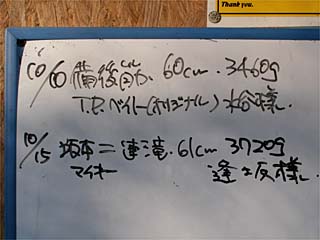 Thank you.
10/10 備後 60cm. 3460g
T.P.ベイト(オリジナル) 水谷様.
10/15 坂本=連滝. 61cm 3720g
マイキー 逢坂様.